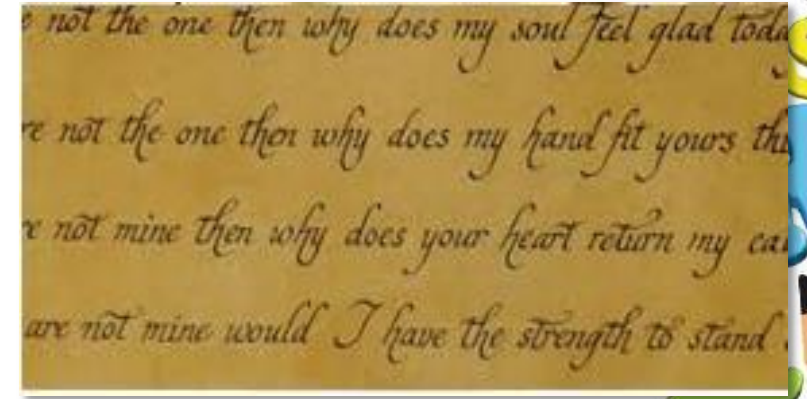 not the one then why does my soul feel glad toda
re not the one then why does my hand fit yours thi
not mine then why does your heart return my cal
are not mine would I have the strength to stand